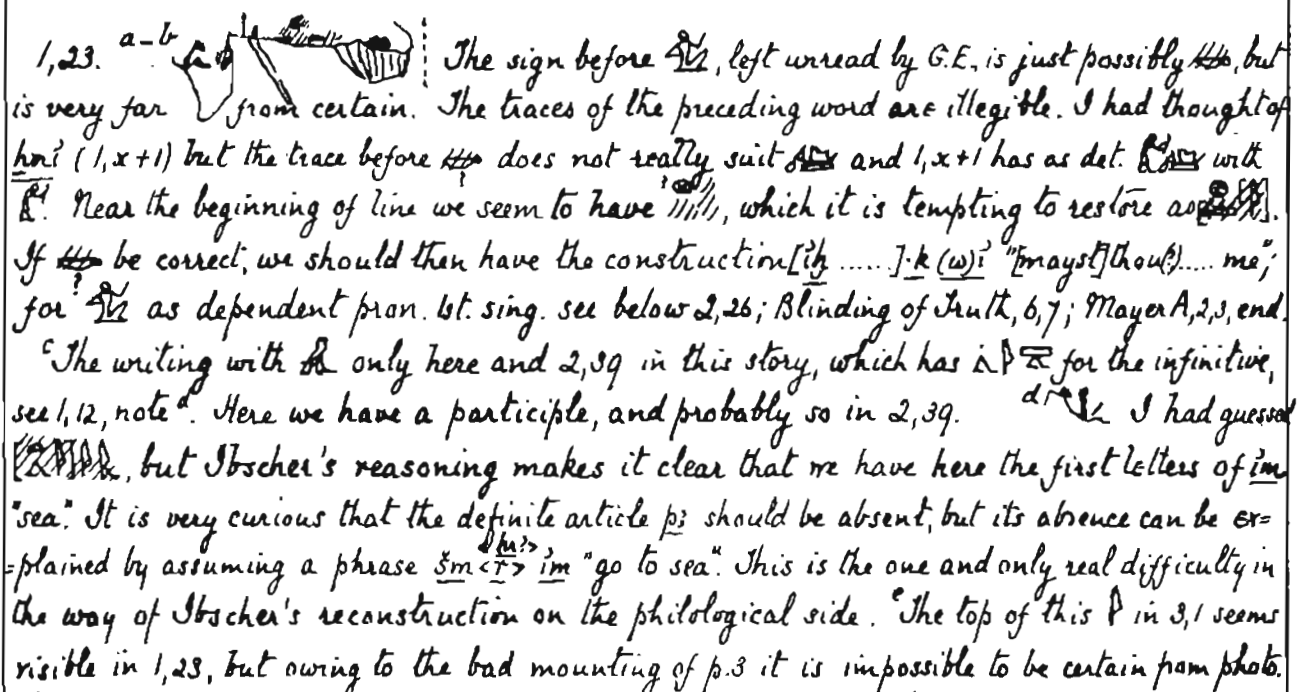 1,23. a-b The sign before , left unread by G.E., is just possibly , but
is very far from certain. The traces of the preceding word are illegible. I had thought of
ḫnỉ (1, x+1) but the trace before does not really suit and 1, x+1 has as det. with
. Near the beginning of line we seem to have , which it is tempting to restore as [ ].
If be correct, we should then have the construction [ỉḫ ......].k (w)ỉ "[mayst] thou(?)..... me";
for as dependent pron. 1st. sing. see below 2,26; Blinding of Truth, 6,7; Mayer A, 2,3, end.
c The writing with only here and 2,39 in this story, which has for the infinitive,
see 1,12, note d. Here we have a participle, and probably so in 2,39. d I had guessed
[ ], but Ibscher's reasoning makes it clear that we have here the first letters of ỉm
"sea". It is very curious that the definite article pꜣ should be absent, but its absence can be ex=
=plained by assuming a phrase šm <r> ỉm "go to sea". This is the one and only real difficulty in
the way of Ibscher's reconstruction on the philological side. e The top of this in 3,1 seems
visible in 1,23, but owing to the bad mounting of p.3 it is impossible to be certain from photo.